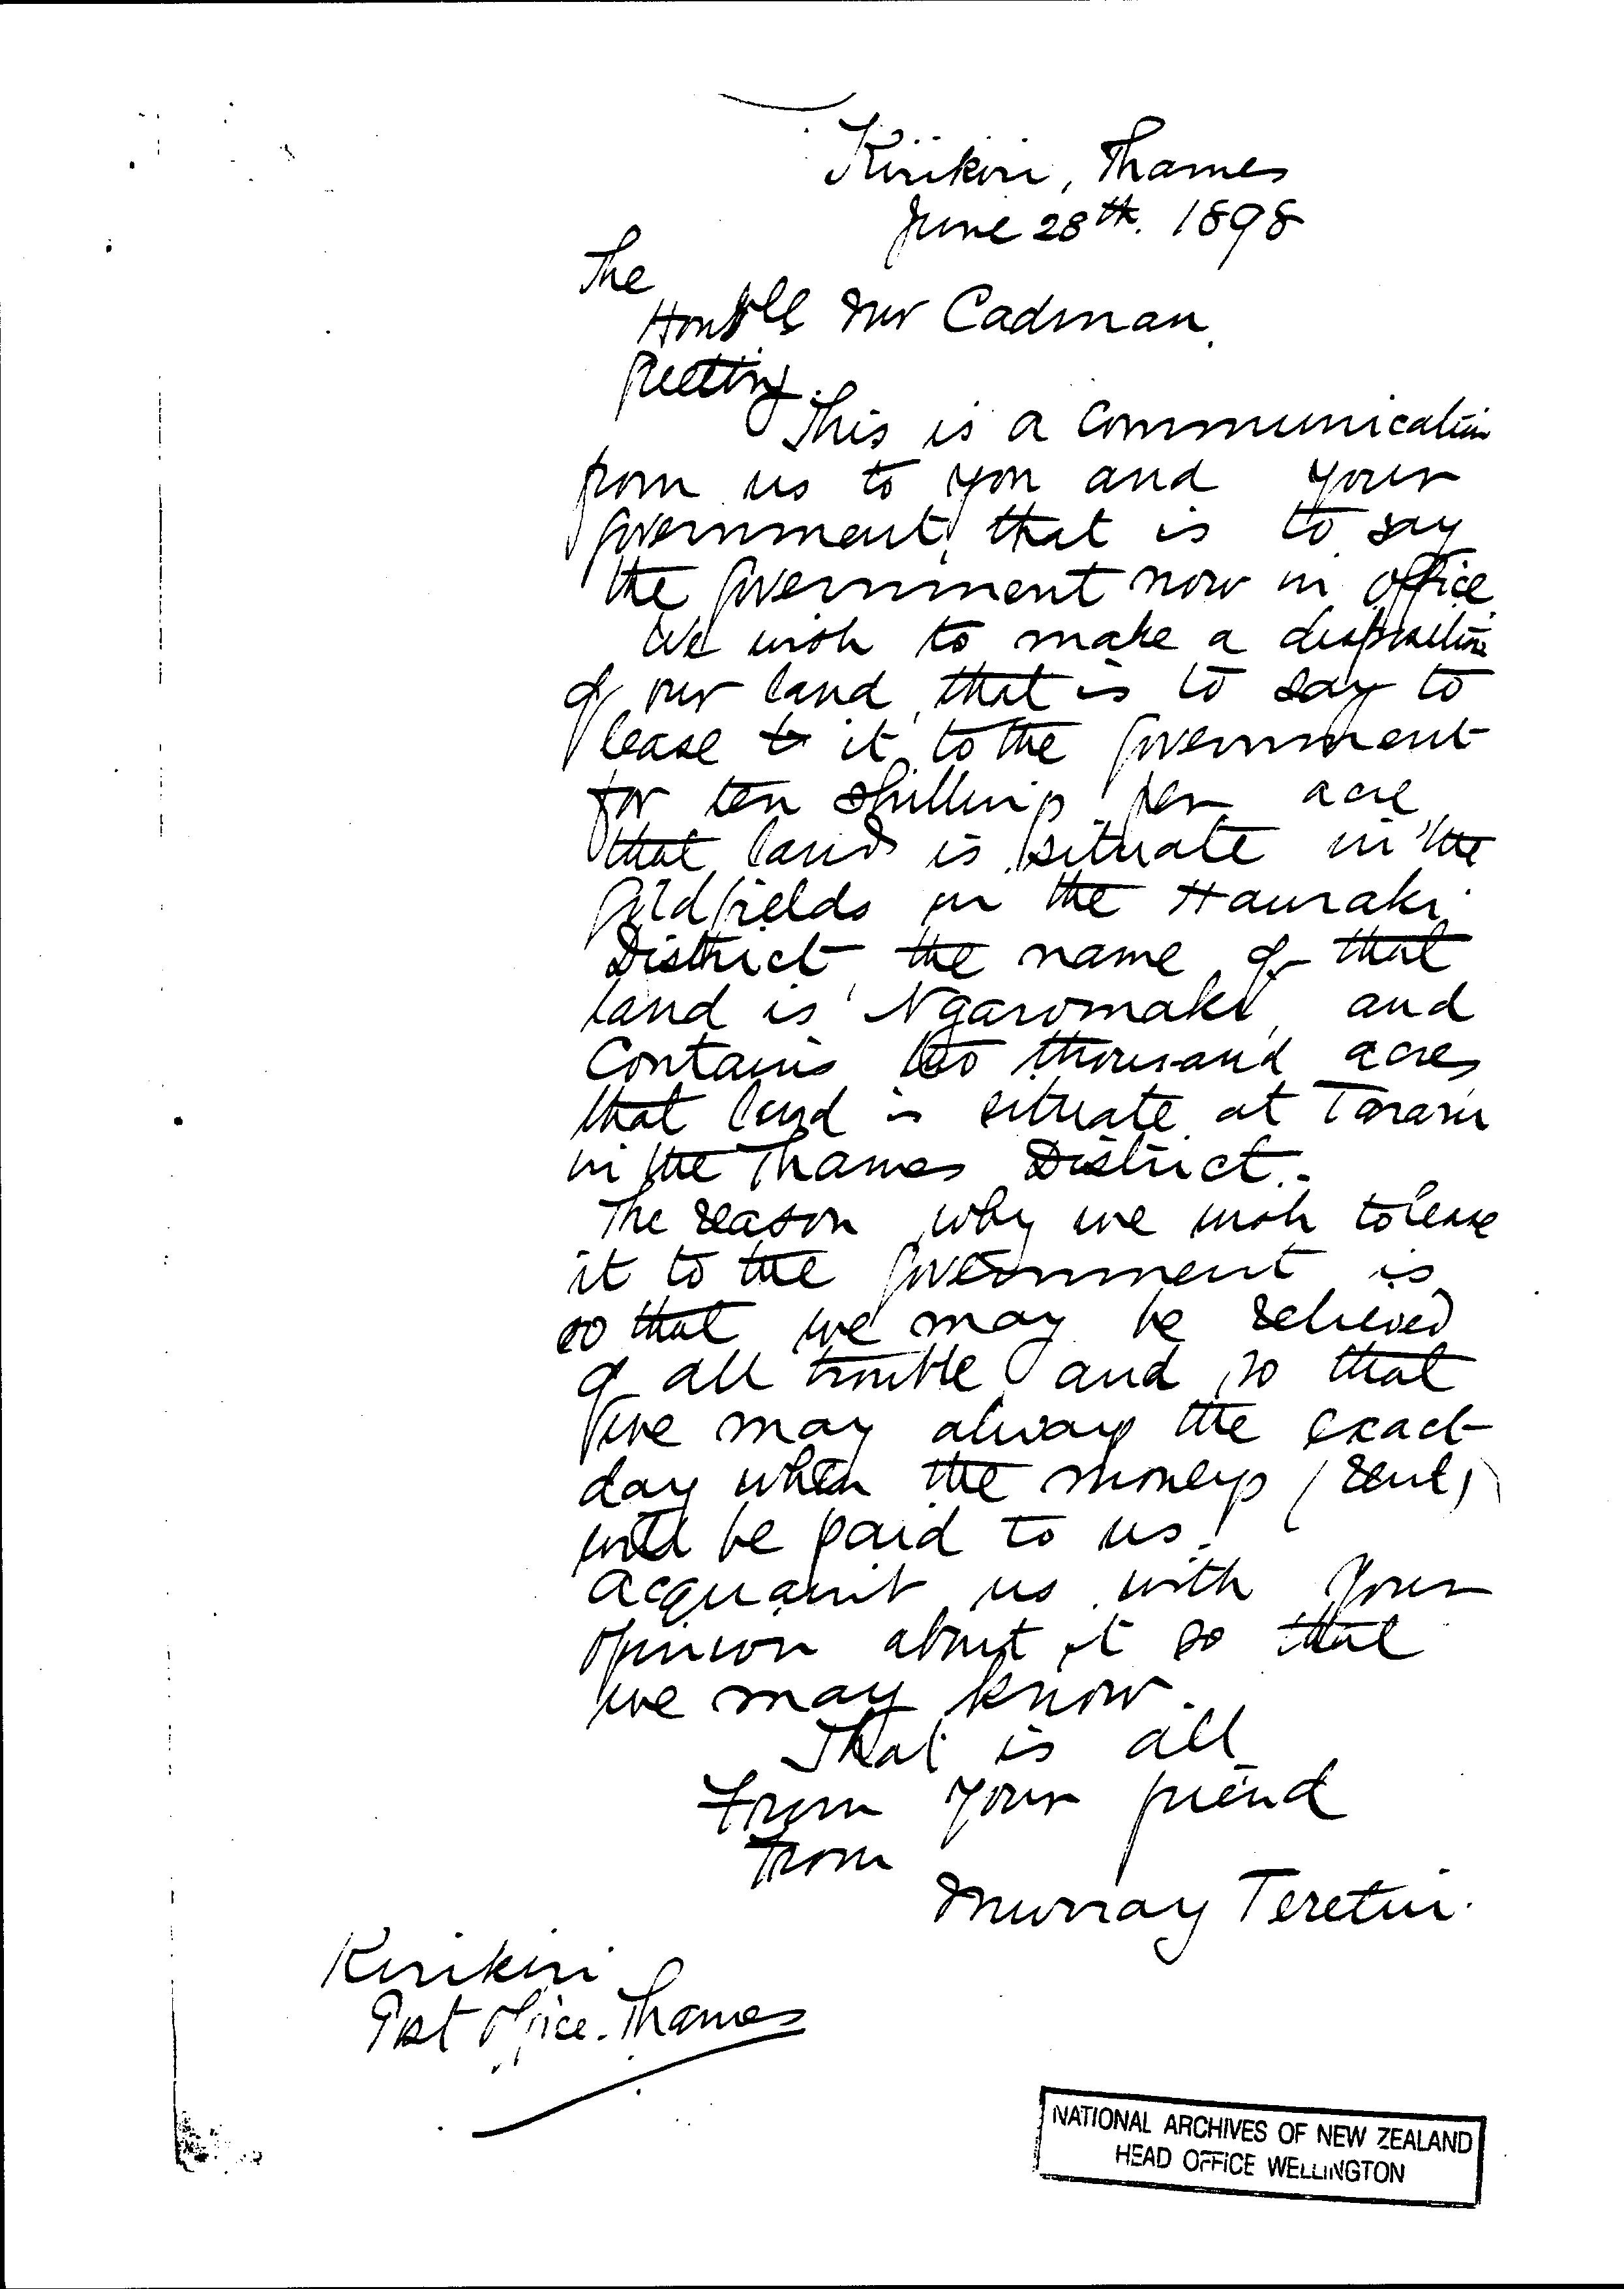 Kirikiri, Thames
June 28th. 1898
The
Honble Mr Cadman.
Greeting.
This is a communication
from us to you and your
government, that is to say
the government now in office.
We wish to make a disposition
of our land, that is to say to
lease to it to the government
for ten shillings per acre
that land is situate in the
goldfields in the Hauraki
District the name of that
land is 'Ngaromaki' and
contains two thousand acres
that land is situate at Tararu
in the Thames District.
The reason why we wish to lease
it to the government is
so that we may be relieved
of all trouble and so that
we may always the exact
day when the moneys (rent)
will be paid to us.
acquaint us with your
opinion about it so that
we may know.
That is all
From your friend
From
Murray Teretui.
Kirikiri
Post Office. Thames
NATIONAL ARCHIVES OF NEW ZEALAND
HEAD OFFICE WELLINGTON